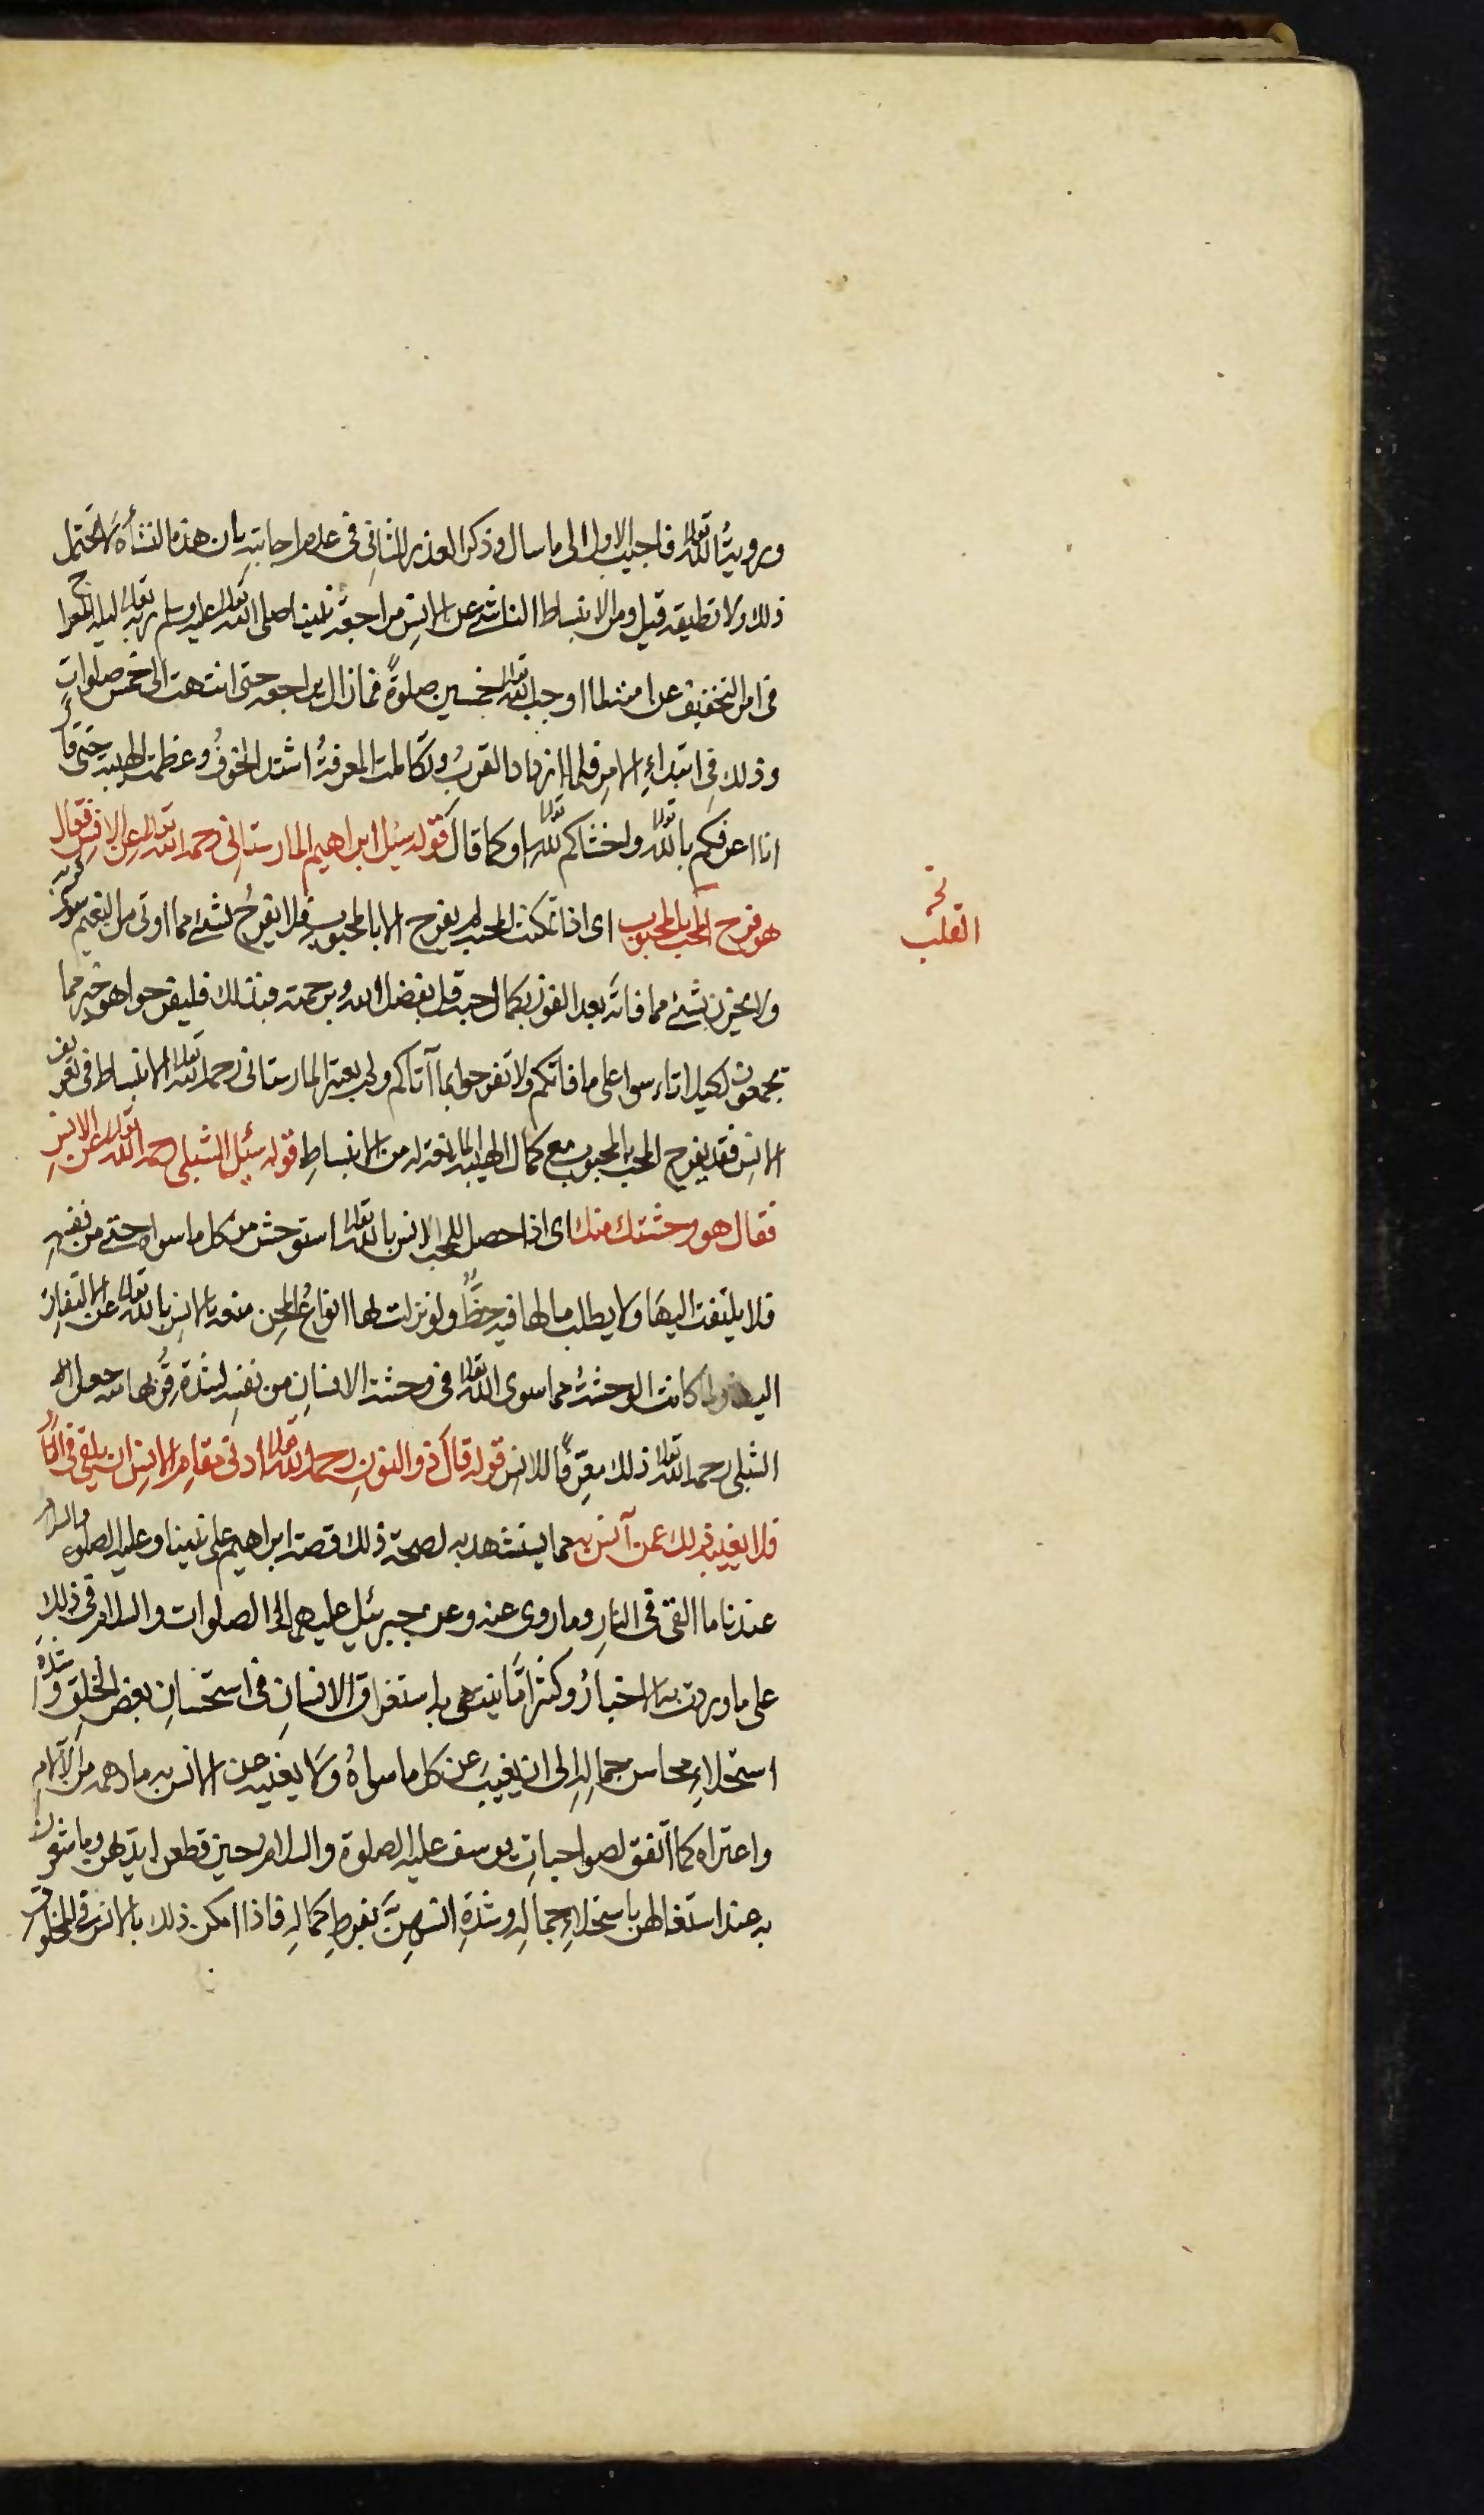 ورؤيتُ الله تعالى فاجيب الاول الى ما سال وذكر العذر للثانِى فى عدم اجابته بان هذه النشأة لا تحتمل
ذلك ولا تطيقه قيل ومن الانبساط الناشئ عن الانسِ مراجعة نبينا صلى الله تعالى عليه وسلم ربه تعالى ليلة المعراج
فى امر التخفيف عن امته لما اوجب الله تعالى خمسين صلوةً فما زال يراجعه حتى انتهت الى خمس صلواتٍ
وذلك فِى ابتداءِ الامرِ فلما ازداد القربُ وتكاملت المعرفةُ اشتد الخوفُ وعظمت الهيبة حتى قال
انا اعرفكم بالله تعالى واخشاكم لله تعالى او كما قال قوله سئل ابراهيم المارستانى رحمه الله تعالى عن الانس فقال
هو فرح المحب بالمحبوب اى اذا تمكنت المحبة لم يفرح الا بالمحبوب فلا يفرحُ بشئ مما اوتى من النعيم سوى قربه
نخـ
القلب
ولا يحزن بشئ مما فاته بعد الفوز بكمال حبه قل بفضل الله وبرحمته فبذلك فليفرحوا هو خير مما
يجمعون لكيلا تاسوا على ما فاتكم ولا تفرحوا بما آتاكم ولم يعتبر المارستانى رحمه الله تعالى الانبساط فى تعريف
الانس فقد يفرح المحب بالمحبوب مع كمال الهيبة المانعة له من الانبساطِ قوله سئل الشبلى رحمه الله تعالى عن الانسِ
فقال هو وحشتك منك اى اذا حصل للمحب الانس بالله تعالى استوحش من كل ما سواه حتى من نفسِهِ
فلا يلتفت اليها ولا يطلب ما لها فيه حظٌّ ولو نزلت لها انواعُ المحن منعه الانس بالله تعالى عن الالتفات
اليها ولما كانت الوحشةُ مما سوى الله تعالى فى وحشة الانسانِ من نفسِه لشدة قربها منه جعل
الشبلى رحمه الله تعالى ذلك معرفًا للانس قوله قال ذو النونِ رحمه الله تعالى ادنى مقامِ الانسِ ان يلقى فى النار
فلا يغيبه ذلك عمن آنس به مما يستشهد به لصحة ذلك قصة ابراهيم على نبينا وعليه الصلوة والسلام
عندنا ما القى فى النارِ وما روى عنه وعن جبرئيل عليهما الصلوات والسلام فى ذلك
على ما وردت به الاخبارُ وكثيرًا ما ينتهى استغراق الانسانِ فى استحسانِ بعض الخلقِ وشدة
استحلاءِ محاسن جمالِهِ الى ان يغيبَ عن كل ما سواهُ ولا يغيبه عن الانس به ما دهمه من الآلام
واعتراه كما اتفق لصواحباتِ يوسف عليه الصلوة والسلام حين قطعن ايديهن وما شعرن
به عند اشتغالهن باستحلاءِ جمالِهِ وشدةِ انسهِنَّ بفرطِ كمالِهِ فاذا امكن ذلك بالانس فى المخلوق